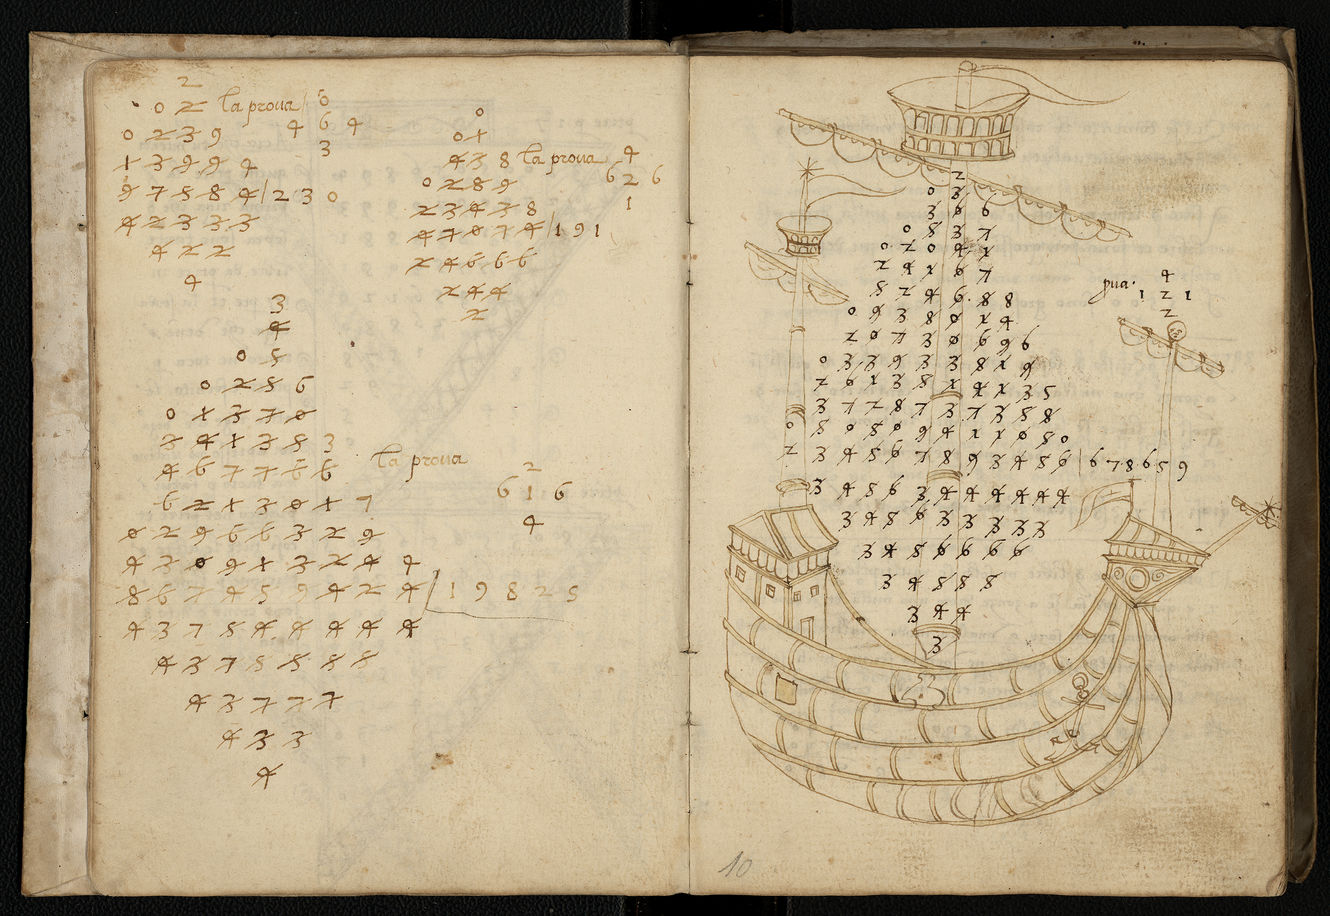 2
0 2 la proua / 0
0 2 3 9 4 6 4
3
1 3 9 9 4
9 7 5 8 4 / 2 3 0
4 2 3 3 3
4 2 2
4
0
0 1
4 3 8 la proua 4
0 2 8 9 6 2 6
2 3 4 3 8 1
4 7 0 7 4 / 1 9 1
2 4 6 6 6
2 4 4
2
3
4
0 5
0 2 8 6
0 1 3 7 0
2 4 1 3 5 3
4 6 7 7 6 6 la proua
2
6 2 1 3 0 1 7 6 1 6
4
0 2 9 6 6 3 2 9
4 3 0 9 1 3 2 4 4
8 6 7 4 5 9 4 2 4 / 1 9 8 2 5
4 3 7 5 4 4 4 4 4
4 3 7 5 5 8 8
4 3 7 7 7
4 3 3
4
2
0 3
3 0 6
0 8 3 7
0 2 0 4 1
2 4 1 6 7
pua. 4
1 2 1
2
5 2 4 6 8 8
0 9 3 8 0 1 4
2 0 7 3 0 6 9 6
0 3 3 9 3 3 8 1 9
2 0 1 3 8 1 4 1 3 5
3 7 7 8 7 3 7 3 5 8
0 8 0 5 0 9 4 1 1 0 5 0
2 3 4 5 6 7 8 9 3 4 5 6 | 6 7 8 6 5 9
3 4 5 6 3 4 4 4 4 4 4
3 4 5 6 3 3 3 3 3
3 4 5 6 6 6 6
3 4 5 5 5
3 4 4
3
10